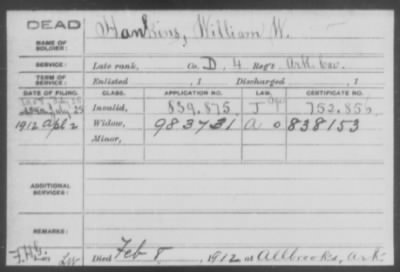 DEAD
NAME OF SOLDIER: Hankins, William W.
SERVICE: Late rank, Co. D, 4 Reg't Ark. Cav.
TERM OF SERVICE: Enlisted , 1 Discharged , 1
DATE OF FILING. CLASS. APPLICATION NO. LAW. CERTIFICATE NO.
July 25 Invalid, 839.875 J 752.856
1912 Apl 2 Widow, 983731 838153
Minor,
ADDITIONAL SERVICES:
REMARKS:
Died Feb 8, 1912 at Allbrooks, Ark.